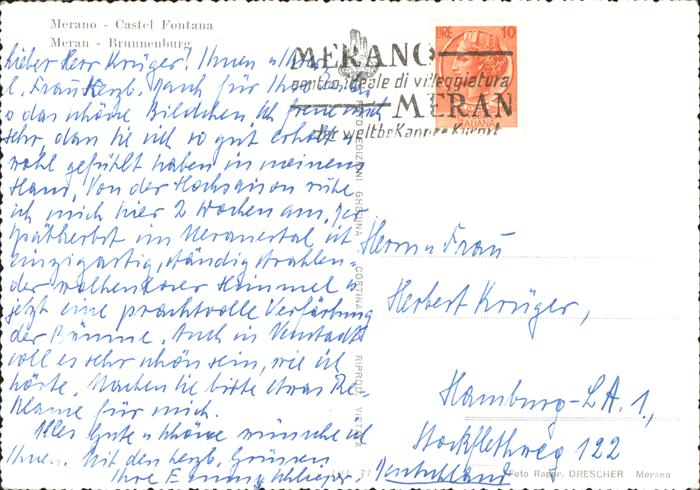 Merano - Castel Fontana
Meran - Brunnenburg
Lieber Herr Krüger! Ihnen u Ihrer
l. Frau herzl. Dank für Ihren
u das schöne Bildchen. Ich freue mich
sehr, dass Sie sich so gut erholt u
wohl gefühlt haben in meinem
Haus. Von der Hochsaison ruhe
ich mich hier 2 Wochen aus. Der
Spätherbst im Meranertal ist
einzigartig, ständig strahlen-
der wolkenloser Himmel u
jetzt eine prachtvolle Verfärbung
der Bäume. Auch in
soll es sehr schön sein, wie ich
hörte. Machen Sie bitte etwas Re-
klame für mich.
Alles Gute u Schöne wünsche ich
Ihnen. Mit den herzl. Grüssen
Ihre
LIRE 10
ITALIANA
MERANO
centro ideale di villeggiatura
MERAN
der weltbekannte Kurort
EDIZIONI GHEDINA CORTINA
RIPROD. VIETATA
Herrn u Frau
Herbert Krüger,
Hamburg-L.A. 1,
Stockflethweg 122
Deutschland
Foto Rappr. DRESCHER Merano